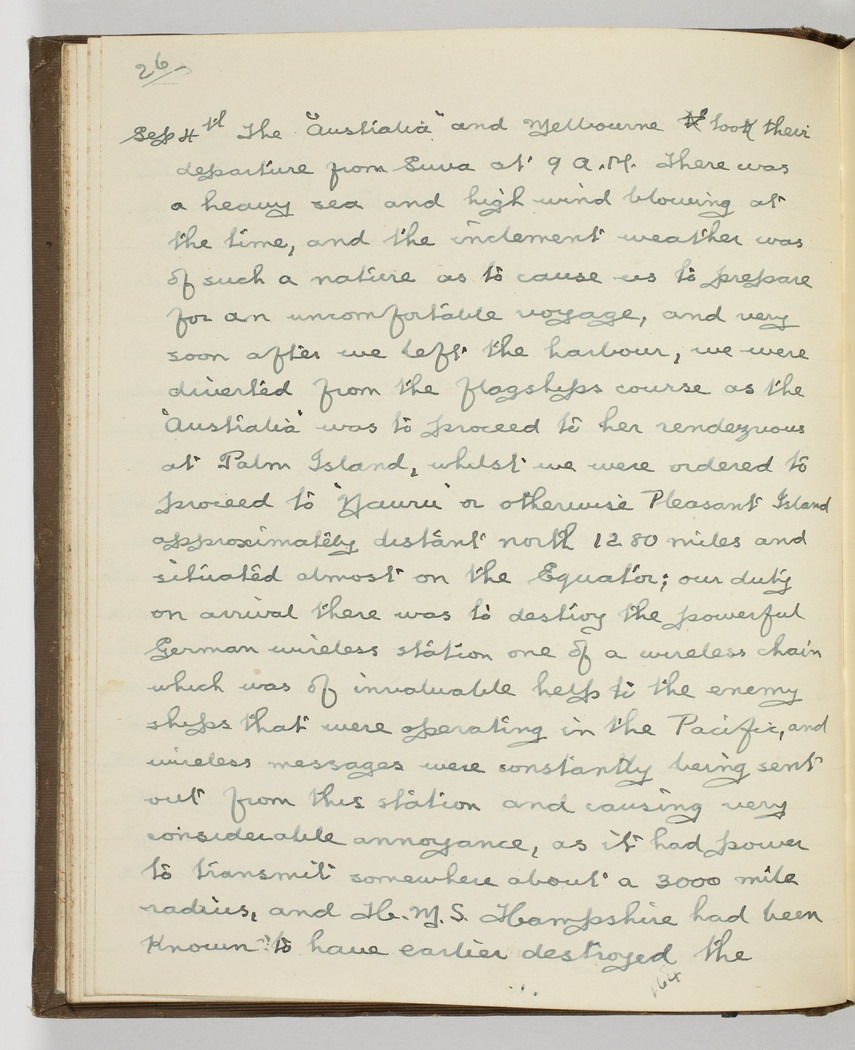 26
Sep 4th The "Australia" and Melbourne took their
departure from Suva at 9 A.M. There was
a heavy sea and high wind blowing at
the time, and the inclement weather was
of such a nature as to cause us to prepare
for an uncomfortable voyage, and very
soon after we left the harbour, we were
diverted from the flagships course as the
"Australia" was to proceed to her rendezvous
at Palm Island, whilst we were ordered to
proceed to "Nauru" or otherwise Pleasant Island
approximately distant north 1280 miles and
situated almost on the Equator; our duty
on arrival there was to destroy the powerful
German wireless station one of a wireless chain
which was of invaluable help to the enemy
ships that were operating in the Pacific, and
wireless messages were constantly being sent
out from this station and causing very
considerable annoyance, as it had power
to transmit somewhere about a 3000 mile
radius, and H.M.S. Hampshire had been
known to have earlier destroyed the
164